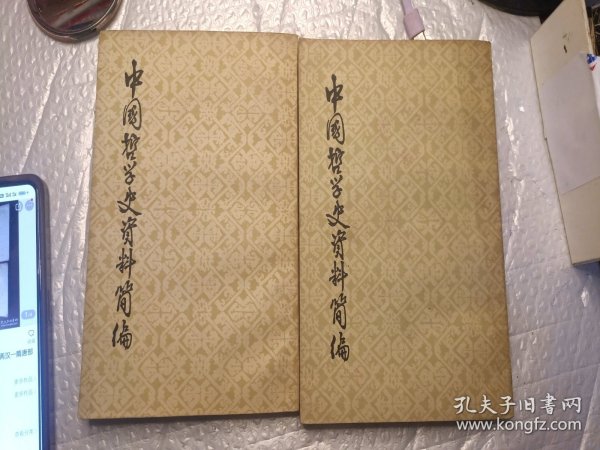 中國哲学史資料简编
中國哲学史資料简编
两汉—隋唐部
孔夫子旧书网
www.kongfz.com